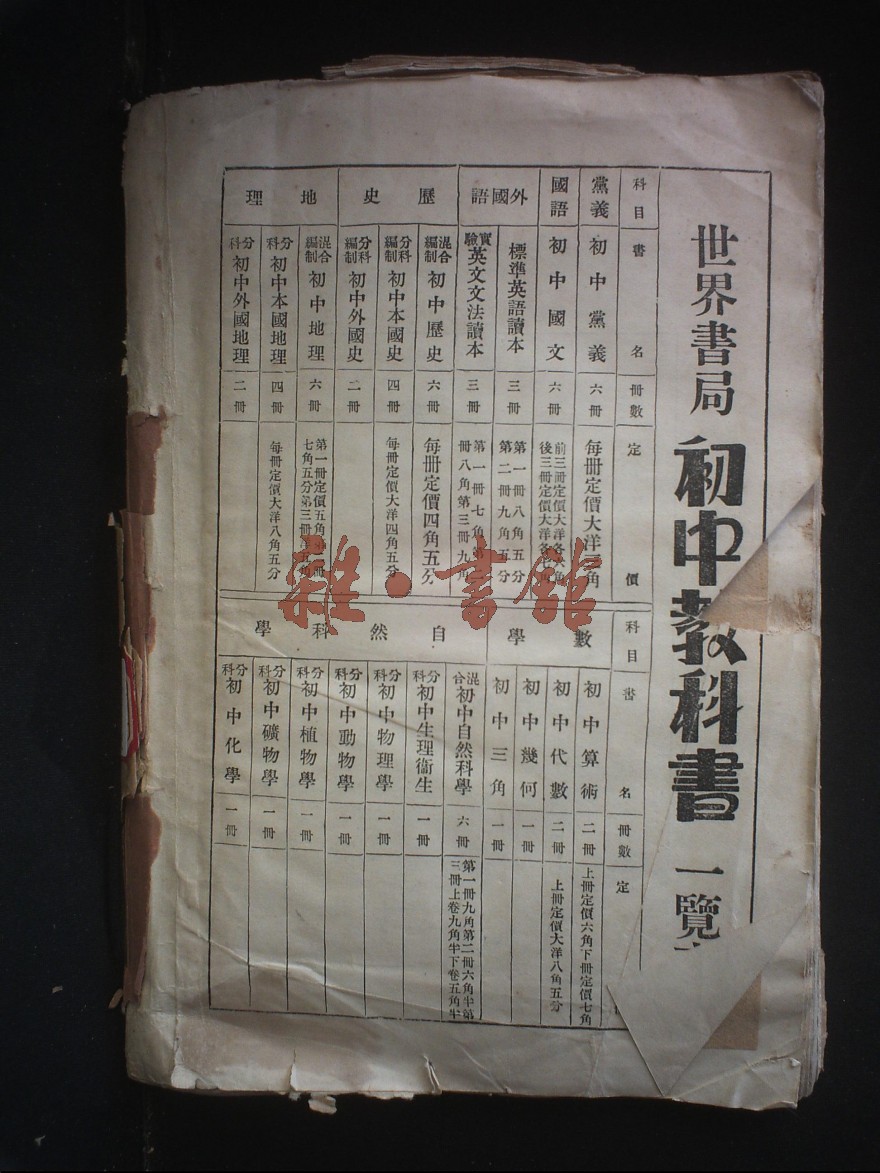 世界書局 初中教科書 一覽
科目
書名
冊數
定價
黨義
初中黨義
六冊
每冊定價大洋 角
國語
初中國文
六冊
前三冊定價大洋各 角
後三冊定價大洋各
外國語
標準英語讀本
三冊
第一冊八角五分
第二冊九角五分
實驗英文文法讀本
三冊
第一冊七角第
冊八角第三冊九角
歷史
混合編制初中歷史
六冊
每冊定價四角五分
分科編制初中本國史
四冊
每冊定價大洋四角五分
分科編制初中外國史
二冊
地理
混合編制初中地理
六冊
第一冊定價五角 冊
七角五分第三冊洋 角
分科初中本國地理
四冊
每冊定價大洋八角五分
分科初中外國地理
二冊
科目
書名
冊數
定
數學
初中算術
二冊
上冊定價六角下冊定價七角
初中代數
二冊
上冊定價大洋八角五分
初中幾何
一冊
初中三角
一冊
自然科學
混合初中自然科學
六冊
第一冊九角第二冊六角半第
三冊上卷九角半下卷五角半
分科初中生理衞生
一冊
分科初中物理學
一冊
分科初中動物學
一冊
分科初中植物學
一冊
分科初中礦物學
一冊
分科初中化學
一冊
雜·書館